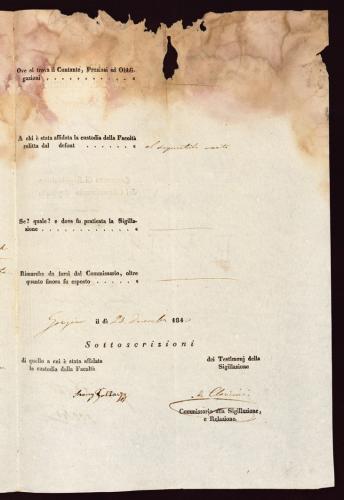 Ove si trova il Contante, Preziosi ed Obbli-
gazioni
A chi è stata affidata la custodia della Facoltà
relitta dal defont
al
Se? quale? e dove fu praticata la Sigilla-
zione
Rimarche da farsi dal Commissario, oltre
quanto finora fu esposto
il dì 184
Sottoscrizioni
di quello a cui è stata affidata
la custodia della Facoltà
dei Testimonj della
Sigillazione
Commissario alla Sigillazione,
e Relazione